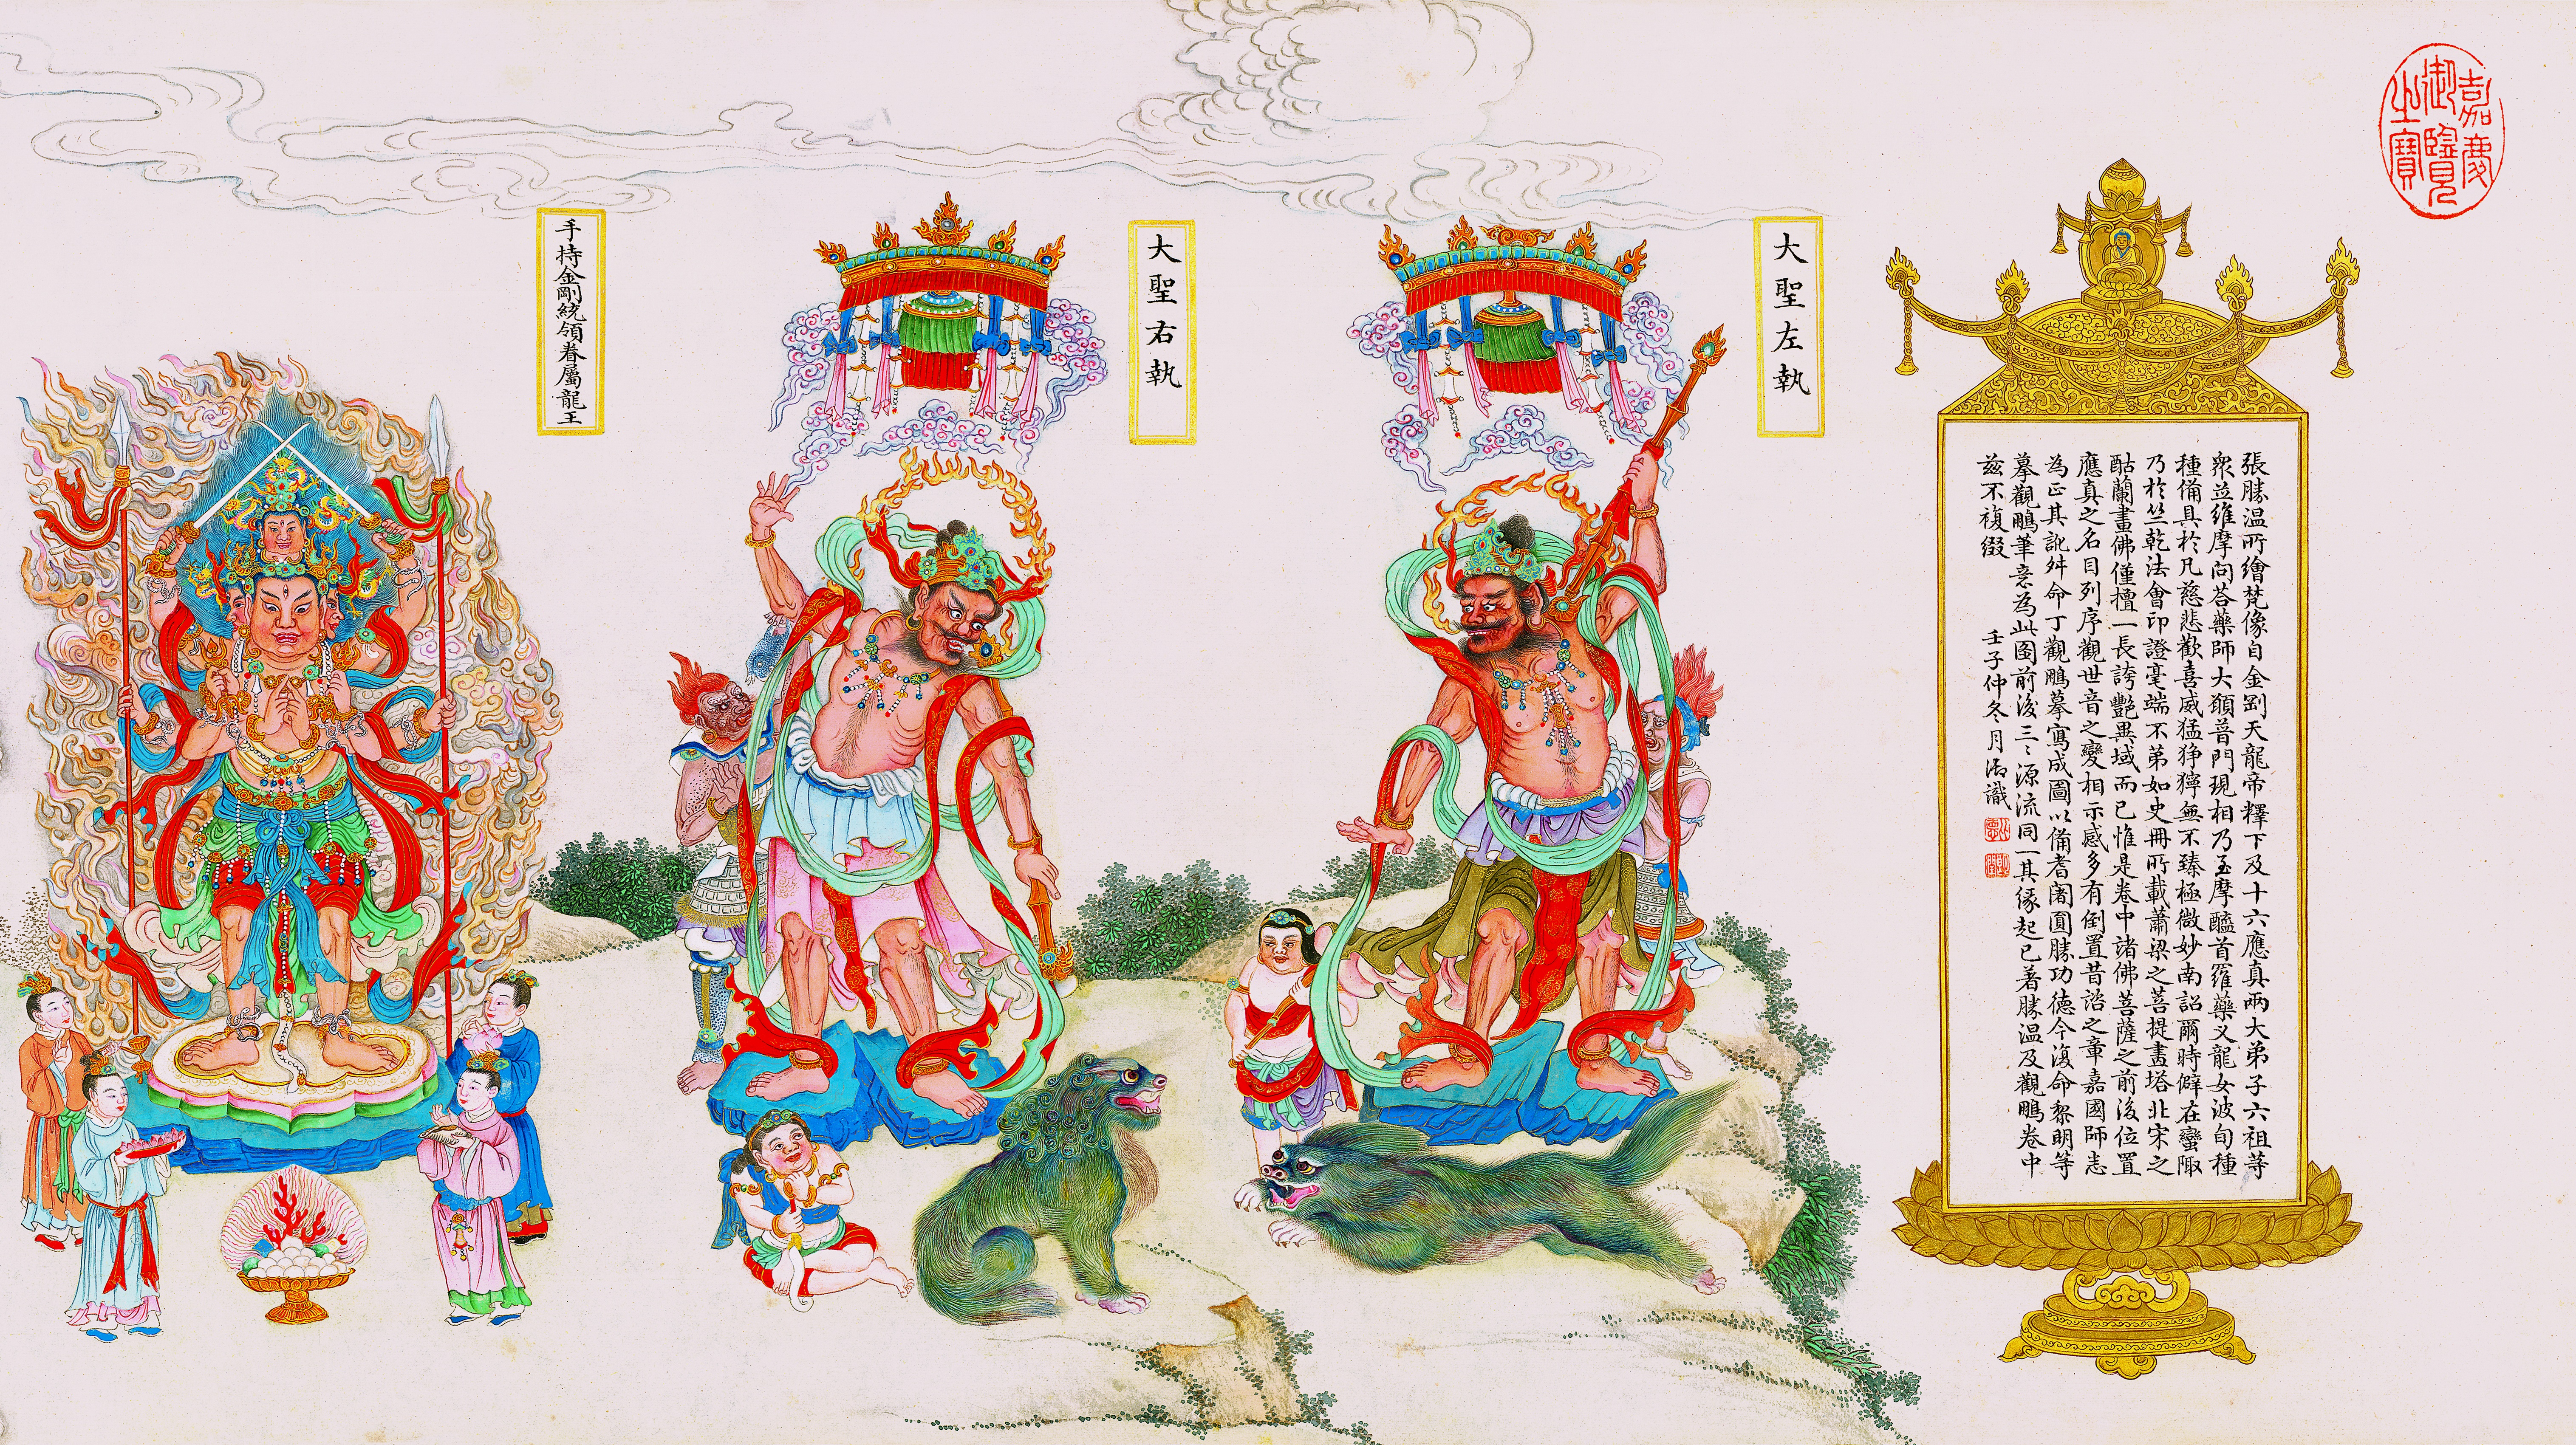 嘉慶
御覽
之寶
張勝溫所繪梵像自金剛天龍帝釋下及十六應真兩大弟子六祖等
衆並維摩問答藥師大願普門現相乃至摩醯首羅藥义龍女波旬種
種備具於凡慈悲歡喜威猛猙獰無不臻極微妙南詔爾時僻在蠻陬
乃於竺乾法會印證毫端不弟如史冊所載蕭梁之菩提畫塔北宋之
酤蘭畫佛僅擅一長誇艷異域而已惟是卷中諸佛菩薩之前後位置
應真之名目列序觀世音之變相示感多有倒置昔詔之章嘉國師志
為正其訛舛命丁觀鵬摹寫成圖以備耆闍圓勝功德今復命黎明等
摹觀鵬筆意為此图前後三三源流同一其緣起已著勝溫及觀鵬卷中
茲不複綴
壬子仲冬月御識
大聖左執
大聖右執
手持金剛統領眷屬龍王